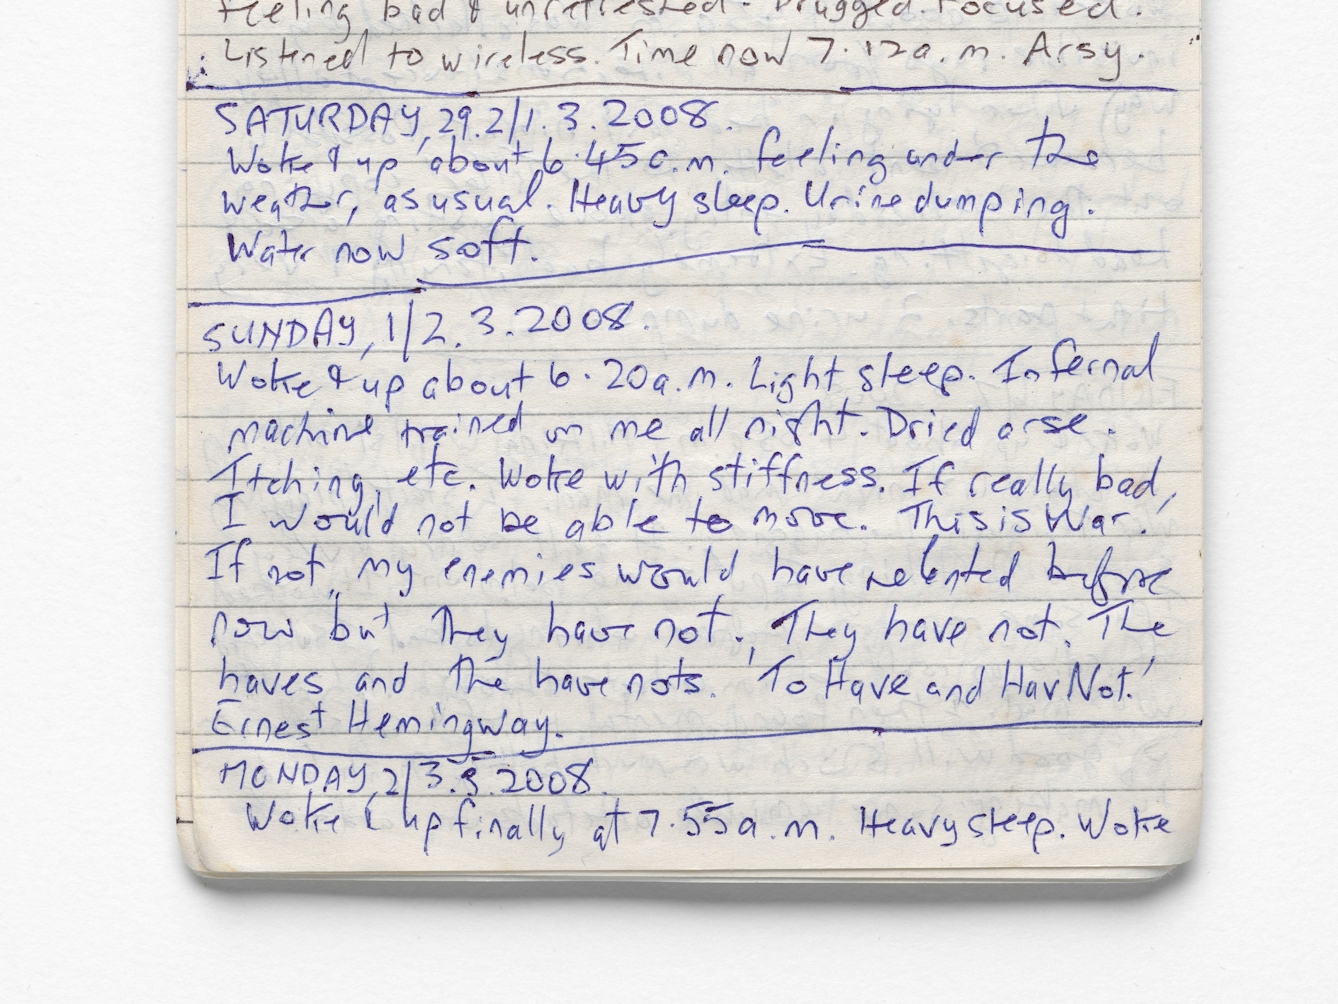 feeling bad & unrefreshed. Drugged. Focused.
Listened to wireless. Time now 7.12a.m. Arsy.
SATURDAY, 29.2/1.3.2008.
Woke & up about 6.45a.m. feeling under the
weather, as usual. Heavy sleep. Urine dumping.
Water now soft.
SUNDAY, 1/2.3.2008.
Woke & up about 6.20a.m. Light sleep. Infernal
machine trained on me all night. Dried arse.
Itching, etc. Woke with stiffness. If really bad,
I would not be able to move. This is War.
If not, my enemies would have relented before
now but they have not. They have not. The
haves and the have nots. 'To Have and Hav Not.'
Ernest Hemingway.
MONDAY, 2/3.3.2008.
Woke & up finally at 7.55a.m. Heavy sleep. Woke